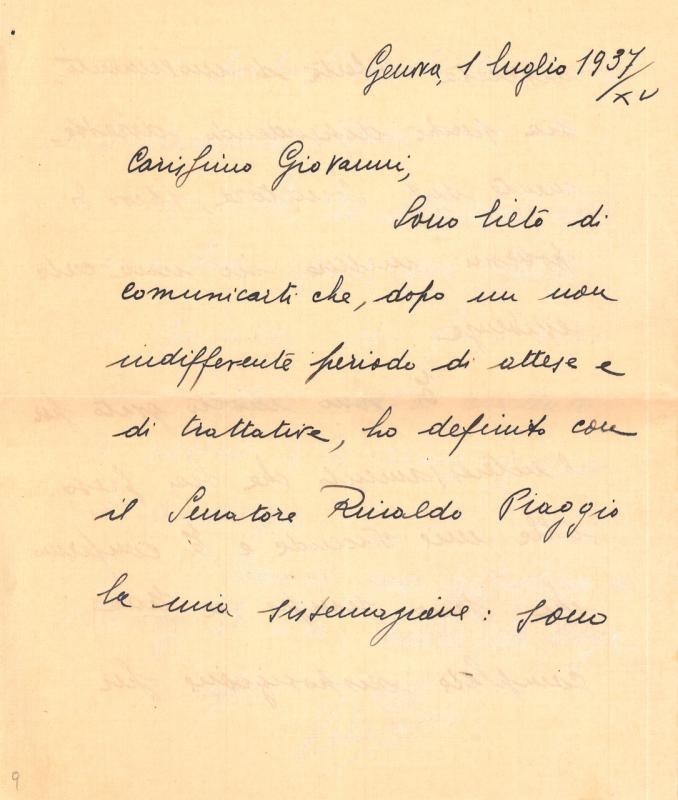 Genova, 1 luglio 1937/XV
Carissimo Giovanni,
Sono lieto di
comunicarti che, dopo un non
indifferente periodo di attese e
di trattative, ho definito con
il Senatore Rinaldo Piaggio
la mia sistemazione: sono
9